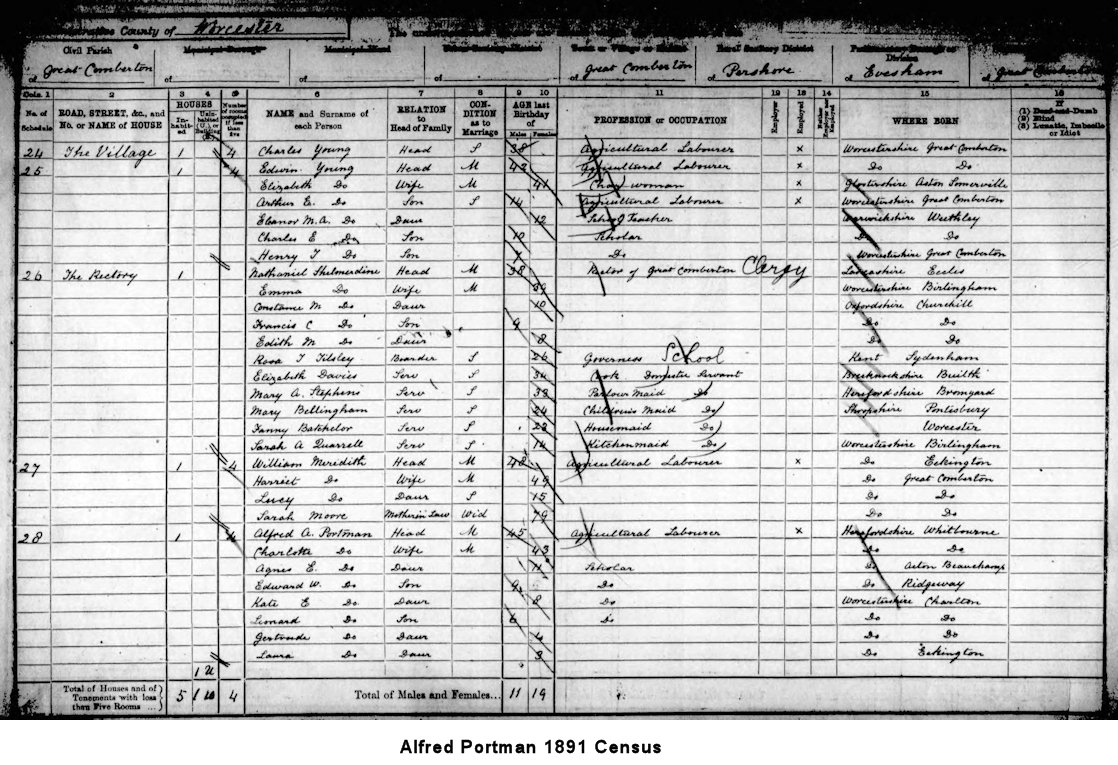 Administrative County of Worcester
Civil Parish of Great Comberton
Municipal Borough of
Municipal Ward of
of
Town or Village or Hamlet of Great Comberton
Rural Sanitary District of Pershore
Parliamentary Borough or Division of Evesham
of Great Comberton
Cols. 1 2 3 4 5 6 7 8 9 10 11 12 13 14 15 16
No. of Schedule
ROAD, STREET, &c., and No. or NAME of HOUSE
HOUSES
Inhabited
Uninhabited (U.) or Building (B.)
Number of rooms occupied if less than five
NAME and Surname of each Person
RELATION to Head of Family
CONDITION as to Marriage
AGE last Birthday of
Males Females
PROFESSION or OCCUPATION
Employer
Employed
Neither Employer nor Employed
WHERE BORN
If
(1) Deaf-and-Dumb
(2) Blind
(3) Lunatic, Imbecile or Idiot
24 The Village 1 4 Charles Young Head S 38 Agricultural Labourer x Worcestershire Great Comberton
25 1 4 Edwin Young Head M 42 Agricultural Labourer x Do Do
Elizabeth Do Wife M 41 Char woman x Glostershire Aston Somerville
Arthur E. Do Son S 14 Agricultural Labourer x Worcestershire Great Comberton
Eleanor M.A. Do Daur 12 School Teacher Warwickshire Weethley
Charles E Do Son 10 Scholar Do Do
Henry T Do Son 7 Do Worcestershire Great Comberton
26 The Rectory 1 Nathaniel Shelmerdine Head M 38 Rector of Great Comberton Clergy Lancashire Eccles
Emma Do Wife M 39 Worcestershire Birlingham
Constance M Do Daur 10 Oxfordshire Churchill
Francis C Do Son 9 Do Do
Edith M Do Daur 8 Do Do
Rosa T Tilsley Boarder S 26 Governess School Kent Sydenham
Elizabeth Davies Serv S 34 Cook Domestic Servant Brecknockshire Builth
Mary A. Stephens Serv S 33 Parlour Maid Do Herefordshire Bromyard
Mary Bellingham Serv S 24 Children's Maid Do Shropshire Pontesbury
Fanny Batchelor Serv S 22 Housemaid Do Worcester
Sarah A Quarrell Serv S 14 Kitchenmaid Do Worcestershire Birlingham
27 1 4 William Meredith Head M 48 Agricultural Labourer x Do Eckington
Harriet Do Wife M 49 Do Great Comberton
Lucy Do Daur S 15 Do Do
Sarah Moore Mother in Law Wid 79 Do Do
28 1 4 Alfred A. Portman Head M 45 Agricultural Labourer x Herefordshire Whitbourne
Charlotte Do Wife M 43 Do Do
Agnes E. Do Daur 11 Scholar Do Acton Beauchamp
Edward W. Do Son 9 Do Do Ridgeway
Kate E Do Daur 8 Do Worcestershire Charlton
Leonard Do Son 6 Do Do Do
Gertrude Do Daur 4 Do Do
Laura Do Daur 3 Do Eckington
1 U
Total of Houses and of Tenements with less than Five Rooms 5 1 U 4 Total of Males and Females... 11 19
Alfred Portman 1891 Census